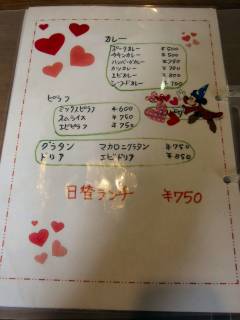 カレー
ポークカレー ¥500
チキンカレー ¥500
ハンバーグカレー ¥750
カツカレー ¥700
エビカレー ¥800
シーフードカレー ¥700
ピラフ
ミックスピラフ ¥600
オムライス ¥750
エビピラフ ¥750
グラタン マカロニグラタン ¥750
ドリア エビドリア ¥850
日替ランチ ¥750